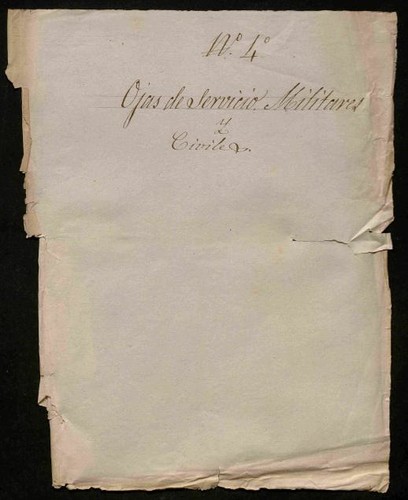 N.º 4º
Ojas de Servicio Militares
y
Civiles.